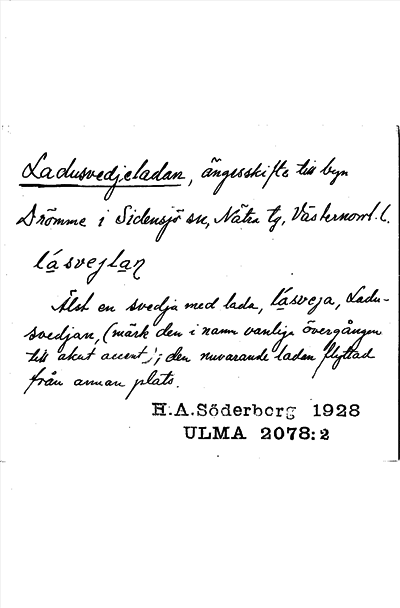 Ladusvedjeladan, ängesskifte till byn
Drömme i Sidensjö sn, Nätra tg, Västernorrl. l.
lásvejlan
Älst en svedja med lada, lásveja, Ladu-
svedjan, (märk den i namn vanliga övergången
till akut accent); den nuvarande ladan flyttad
från annan plats.
H.A.Söderberg 1928
ULMA 2078:2